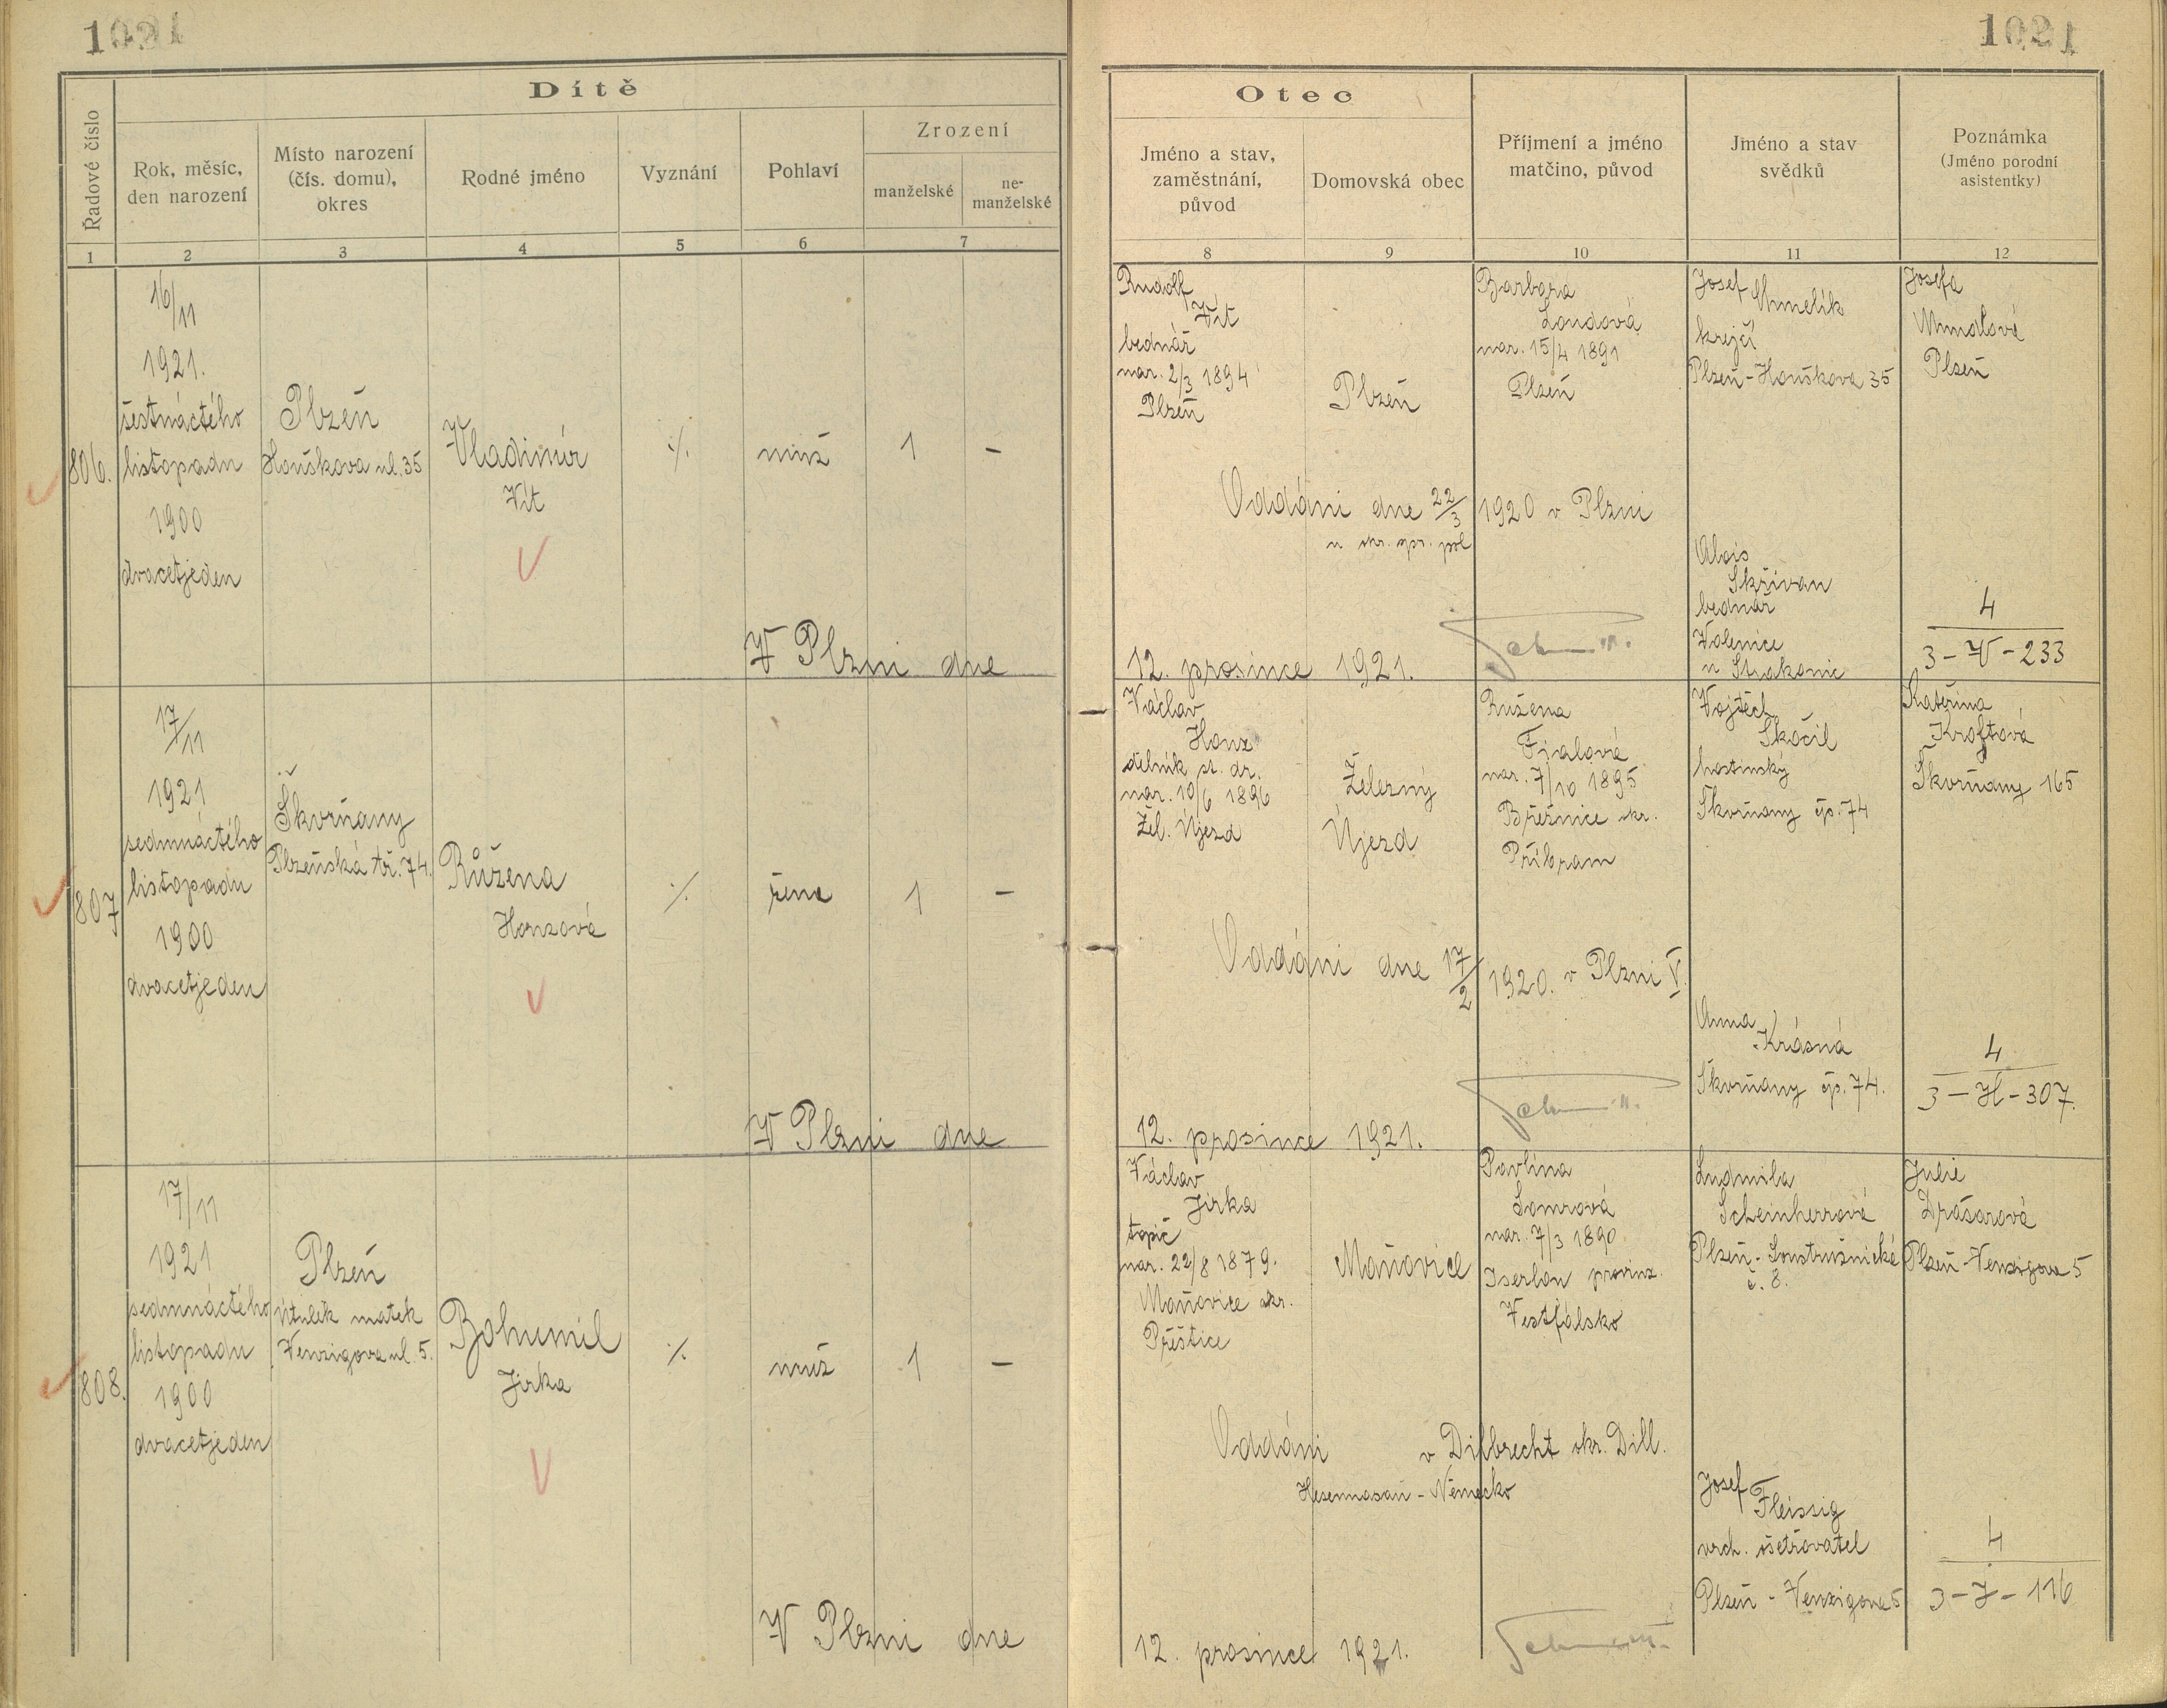 1021
1021
Dítě
Řadové číslo
Rok, měsíc,
den narození
Místo narození
(čís. domu),
okres
Rodné jméno
Vyznání
Pohlaví
Zrození
manželské
ne-
manželské
1
2
3
4
5
6
7
Otec
Jméno a stav,
zaměstnání,
původ
Domovská obec
Příjmení a jméno
matčino, původ
Jméno a stav
svědků
Poznámka
(Jméno porodní
asistentky)
8
9
10
11
12
806.
16/11
1921.
šestnáctého
listopadu
1900
dvacetjeden
Plzeň
Houškova ul. 35
Vladimír
Vít
·/·
muž
1
-
V Plzni dne
Rudolf
Vít
bednář
nar. 2/3 1894
Plzeň
Plzeň
Barbora
Loudová
nar. 15/4 1891
Plzeň
Josef
krejčí
Plzeň-Houškova 35
Josefa
Plzeň
Oddáni dne 22/3 1920 v Plzni
u okr. spr. pol
Alois
Skřivan
bednář
Volenice
u Strakonic
4
3-V-233
12. prosince 1921.
807
17/11
1921
sedmnáctého
listopadu
1900
dvacetjeden
Škvrňany
Plzeňská tř. 74.
Růžena
Honzová
·/·
žena
1
-
V Plzni dne
Václav
Honz
dělník st. dr.
nar. 10/6 1896
Žel. Újezd
Železný
Újezd
Růžena
Fialová
nar. 7/10 1895
Březnice okr.
Příbram
Vojtěch
Skočil
hostinský
Škvrňany čp. 74
Kateřina
Kroftová
Škvrňany 165
Oddáni dne 17/2 1920. v Plzni V.
Anna
Krásná
Škvrňany čp. 74.
4
3-H-307.
12. prosince 1921.
808.
17/11
1921
sedmnáctého
listopadu
1900
dvacetjeden
Plzeň
Útulek matek
Venzigova ul. 5.
Bohumil
Jirka
·/·
muž
1
-
V Plzni dne
Václav
Jirka
topič
nar. 22/8 1879.
Maňovice okr.
Přeštice
Maňovice
Pavlína
Somrová
nar. 7/3 1890
Iserlon provinz.
Vestfálsko
Ludmila
Scheinherrová
Plzeň-
č. 8.
Julie
Drásarová
Plzeň-Venzigova 5
Oddáni v Dilbrecht okr. Dill.
Hesennasau - Německo
Josef
Fleissig
vrch. ošetřovatel
Plzeň - Venzigova 5
4
3-J-116
12. prosince 1921.